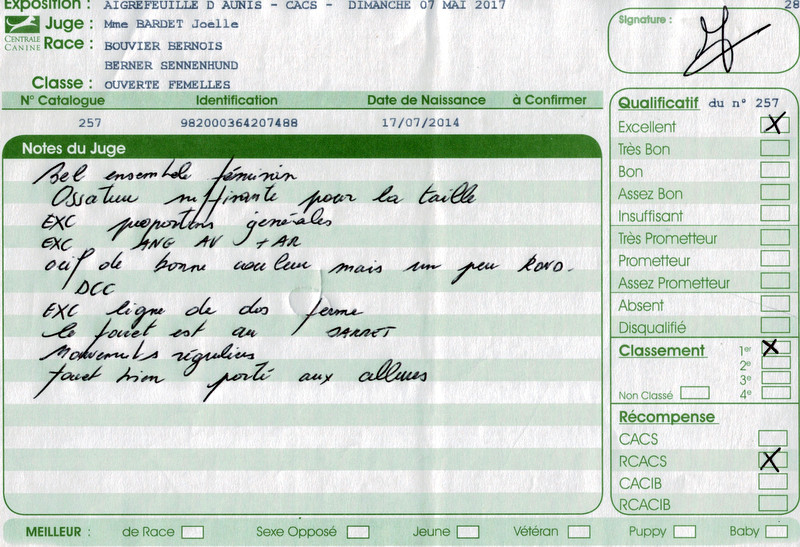 Exposition : AIGREFEUILLE D AUNIS - CACS - DIMANCHE 07 MAI 2017 28
CENTRALE CANINE
Juge : Mme BARDET Joëlle
Race : BOUVIER BERNOIS
BERNER SENNENHUND
Classe : OUVERTE FEMELLES
Signature :
N° Catalogue Identification Date de Naissance à Confirmer
257 982000364207488 17/07/2014
Notes du Juge
Bel ensemble féminin
Ossature suffisante pour la taille
EXC proportions générales
EXC ANG AV + AR
oeil de bonne couleur mais un peu ROND.
DCC
EXC ligne de dos ferme
le fouet est au JARRET
Mouvements réguliers
fouet bien porté aux allures
Qualificatif du n° 257
Excellent X
Très Bon
Bon
Assez Bon
Insuffisant
Très Prometteur
Prometteur
Assez Prometteur
Absent
Disqualifié
Classement 1er X
2e
3e
Non Classé 4e
Récompense
CACS
RCACS X
CACIB
RCACIB
MEILLEUR : de Race Sexe Opposé Jeune Vétéran Puppy Baby